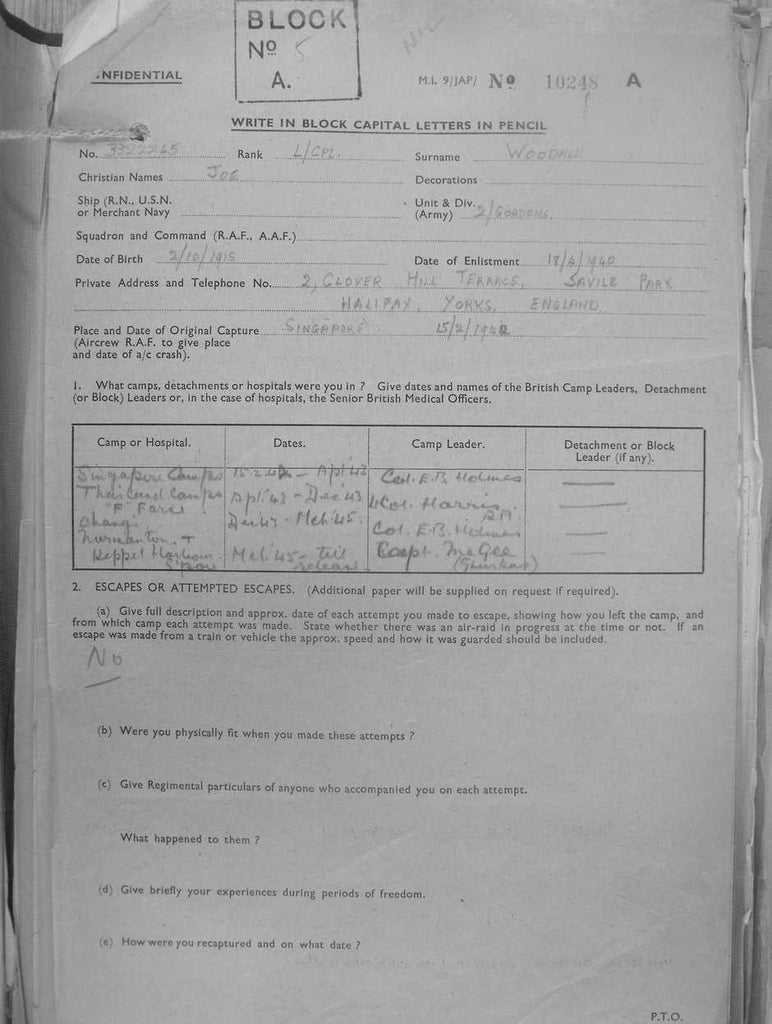 BLOCK
Nº 5
A.
NFIDENTIAL
M.I. 9/JAP/ Nº 10248 A
WRITE IN BLOCK CAPITAL LETTERS IN PENCIL
No. Rank L/CPL. Surname WOODALL
Christian Names JOE Decorations
Ship (R.N., U.S.N. Unit & Div.
or Merchant Navy (Army) 2/GORDONS.
Squadron and Command (R.A.F., A.A.F.)
Date of Birth 2/10/1915 Date of Enlistment 18/6/1940
Private Address and Telephone No. 2, CLOVER HILL TERRACE, SAVILE PARK
HALIFAX, YORKS, ENGLAND
Place and Date of Original Capture SINGAPORE 15/2/1942
(Aircrew R.A.F. to give place
and date of a/c crash).
1. What camps, detachments or hospitals were you in ? Give dates and names of the British Camp Leaders, Detachment
(or Block) Leaders or, in the case of hospitals, the Senior British Medical Officers.
Camp or Hospital. Dates. Camp Leader. Detachment or Block
Leader (if any).
Singapore Camps 15.2.42 - Apl 43 Col. E.B. Holmes
Thailand Camps Apl. '43 - Dec 43 Lt Col. Harris
"F" Force R.A.
Changi Dec 43 - Mch '45. Col. E.B. Holmes
Normanton &
Keppel Harbour Mch '45 - till Capt. McGee
S'pore release (Ghurkas)
2. ESCAPES OR ATTEMPTED ESCAPES. (Additional paper will be supplied on request if required).
(a) Give full description and approx. date of each attempt you made to escape, showing how you left the camp, and
from which camp each attempt was made. State whether there was an air-raid in progress at the time or not. If an
escape was made from a train or vehicle the approx. speed and how it was guarded should be included.
No
(b) Were you physically fit when you made these attempts ?
(c) Give Regimental particulars of anyone who accompanied you on each attempt.
What happened to them ?
(d) Give briefly your experiences during periods of freedom.
(e) How were you recaptured and on what date ?
P.T.O.